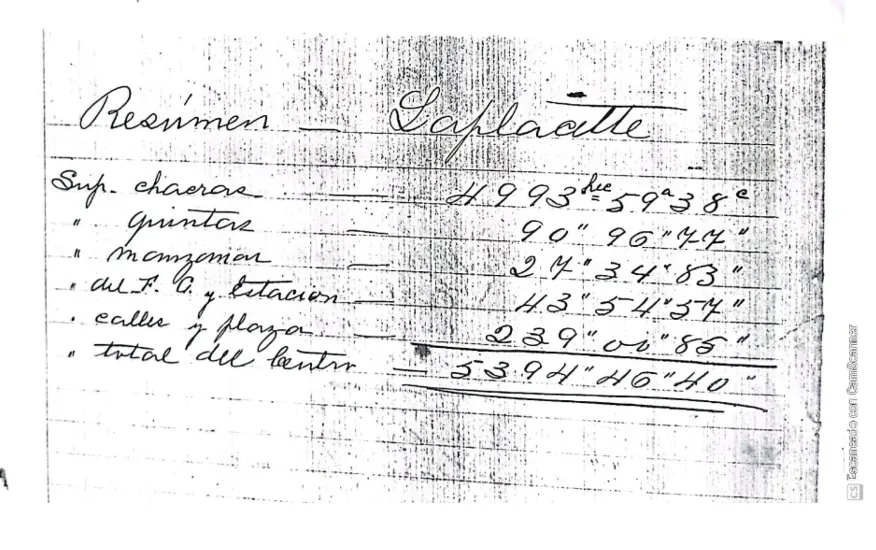 Resúmen — Laplacette
Sup. chacras — 4993 hec 59 a 38 c
" quintas — 90 " 96 " 77 "
" manzanas — 27 " 34 " 83 "
" del F. C. y Estacion — 43 " 54 " 57 "
" calles y plaza — 239 " 00 " 85 "
" total del Centro — 5394 " 46 " 40 "
CS Escaneado con CamScanner